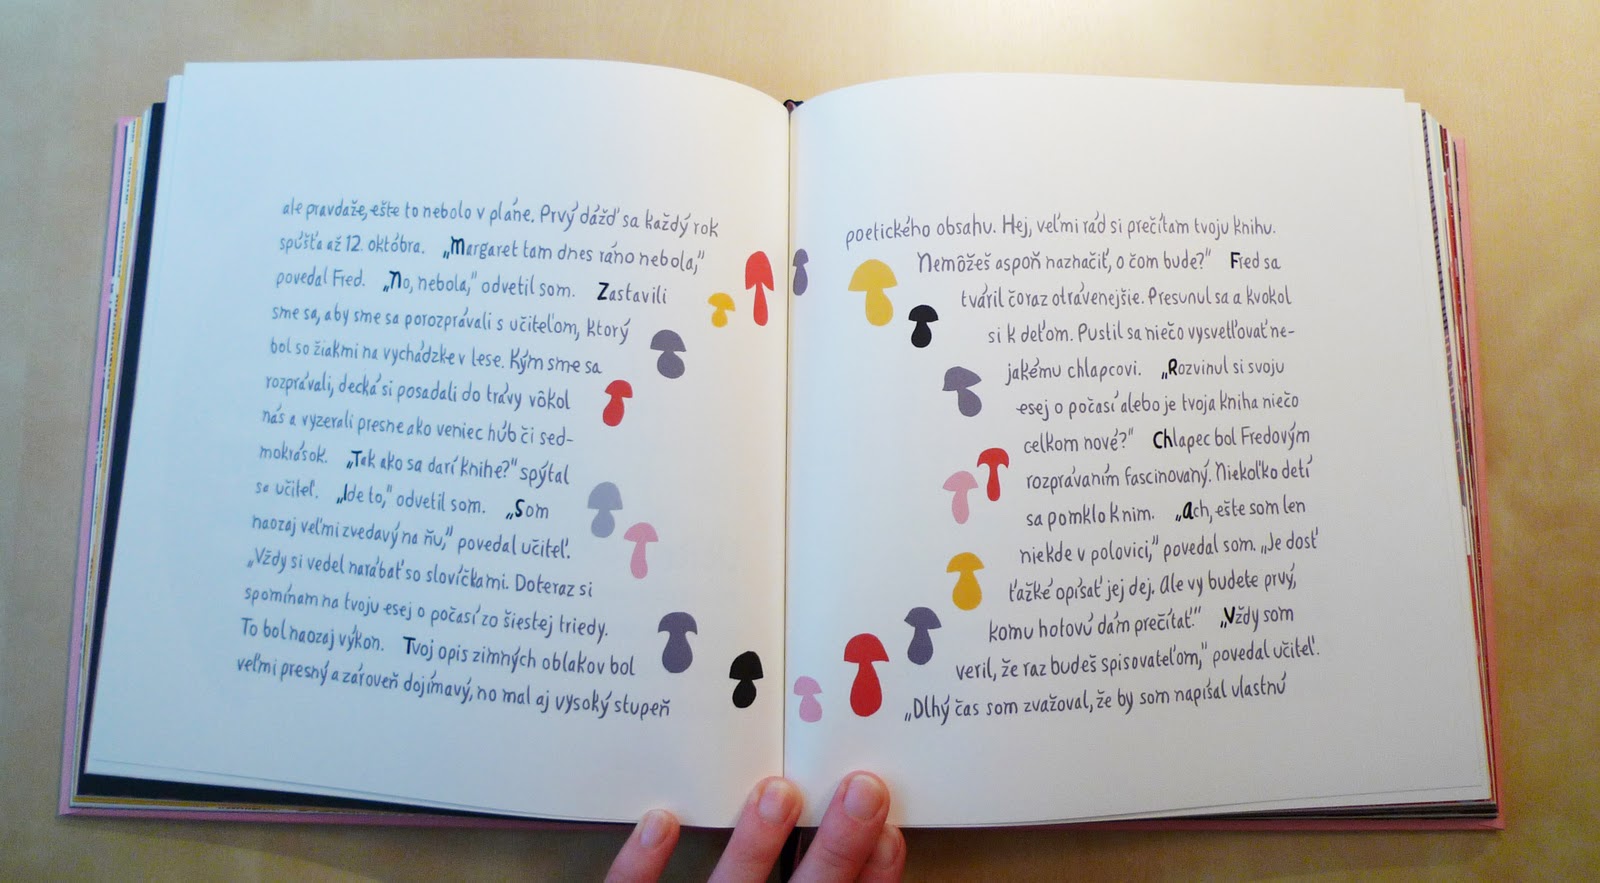 ale pravdaže, ešte to nebolo v pláne. Prvý dážď sa každý rok
spúšťa až 12. októbra. „Margaret tam dnes ráno nebola,“
povedal Fred. „No, nebola,“ odvetil som. Zastavili
sme sa, aby sme sa porozprávali s učiteľom, ktorý
bol so žiakmi na vychádzke v lese. Kým sme sa
rozprávali, decká si posadali do trávy vôkol
nás a vyzerali presne ako veniec húb či sed-
mokrások. „Tak ako sa darí knihe?“ spýtal
sa učiteľ. „Ide to,“ odvetil som. „Som
naozaj veľmi zvedavý na ňu,“ povedal učiteľ.
„Vždy si vedel narábať so slovíčkami. Doteraz si
spomínam na tvoju esej o počasí zo šiestej triedy.
To bol naozaj výkon. Tvoj opis zimných oblakov bol
veľmi presný a zároveň dojímavý, no mal aj vysoký stupeň
poetického obsahu. Hej, veľmi rád si prečítam tvoju knihu.
Nemôžeš aspoň naznačiť, o čom bude?“ Fred sa
tváril čoraz otrávenejšie. Presunul sa a kvokol
si k deťom. Pustil sa niečo vysvetľovať ne-
jakému chlapcovi. „Rozvinul si svoju
esej o počasí alebo je tvoja kniha niečo
celkom nové?“ Chlapec bol Fredovým
rozprávaním fascinovaný. Niekoľko detí
sa pomklo k nim. „Ach, ešte som len
niekde v polovici,“ povedal som. „Je dosť
ťažké opísať jej dej. Ale vy budete prvý,
komu hotovú dám prečítať.“ „Vždy som
veril, že raz budeš spisovateľom,“ povedal učiteľ.
„Dlhý čas som zvažoval, že by som napísal vlastnú